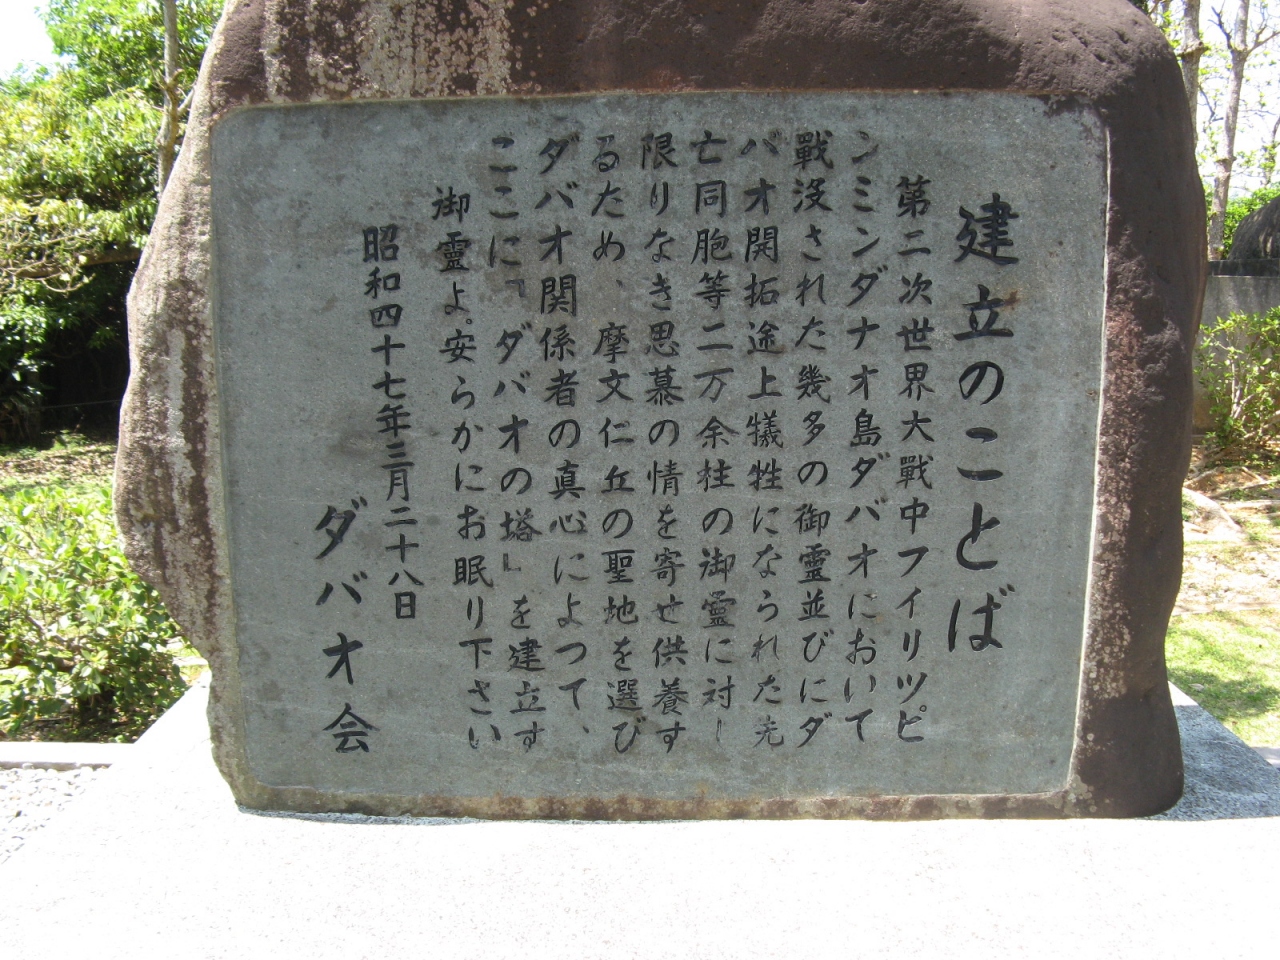 建立のことば
第二次世界大戰中フイリツピ
ンミンダナオ島ダバオにおいて
戰没された幾多の御霊並びにダ
バオ開拓途上犠牲になられた先
亡同胞等二万余柱の御霊に対し
限りなき思慕の情を寄せ供養す
るため、摩文仁丘の聖地を選び
ダバオ関係者の真心によつて、
ここに「ダバオの塔」を建立す
御霊よ。安らかにお眠り下さい
昭和四十七年三月二十八日
ダバオ会